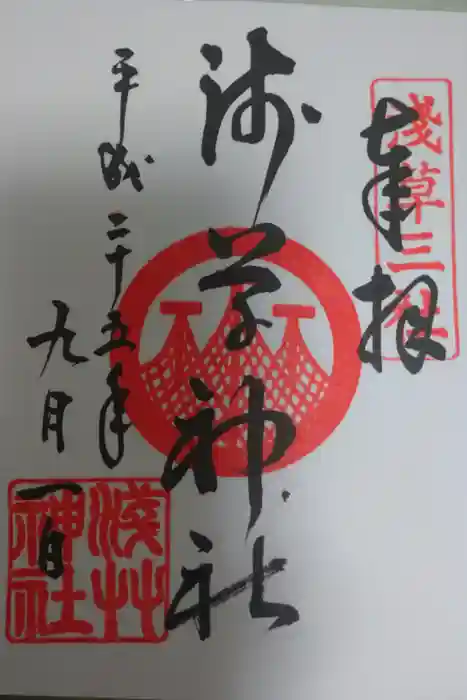 奉拝
淺草三社
浅草神社
平成二十五年
九月一日
淺艸
神社